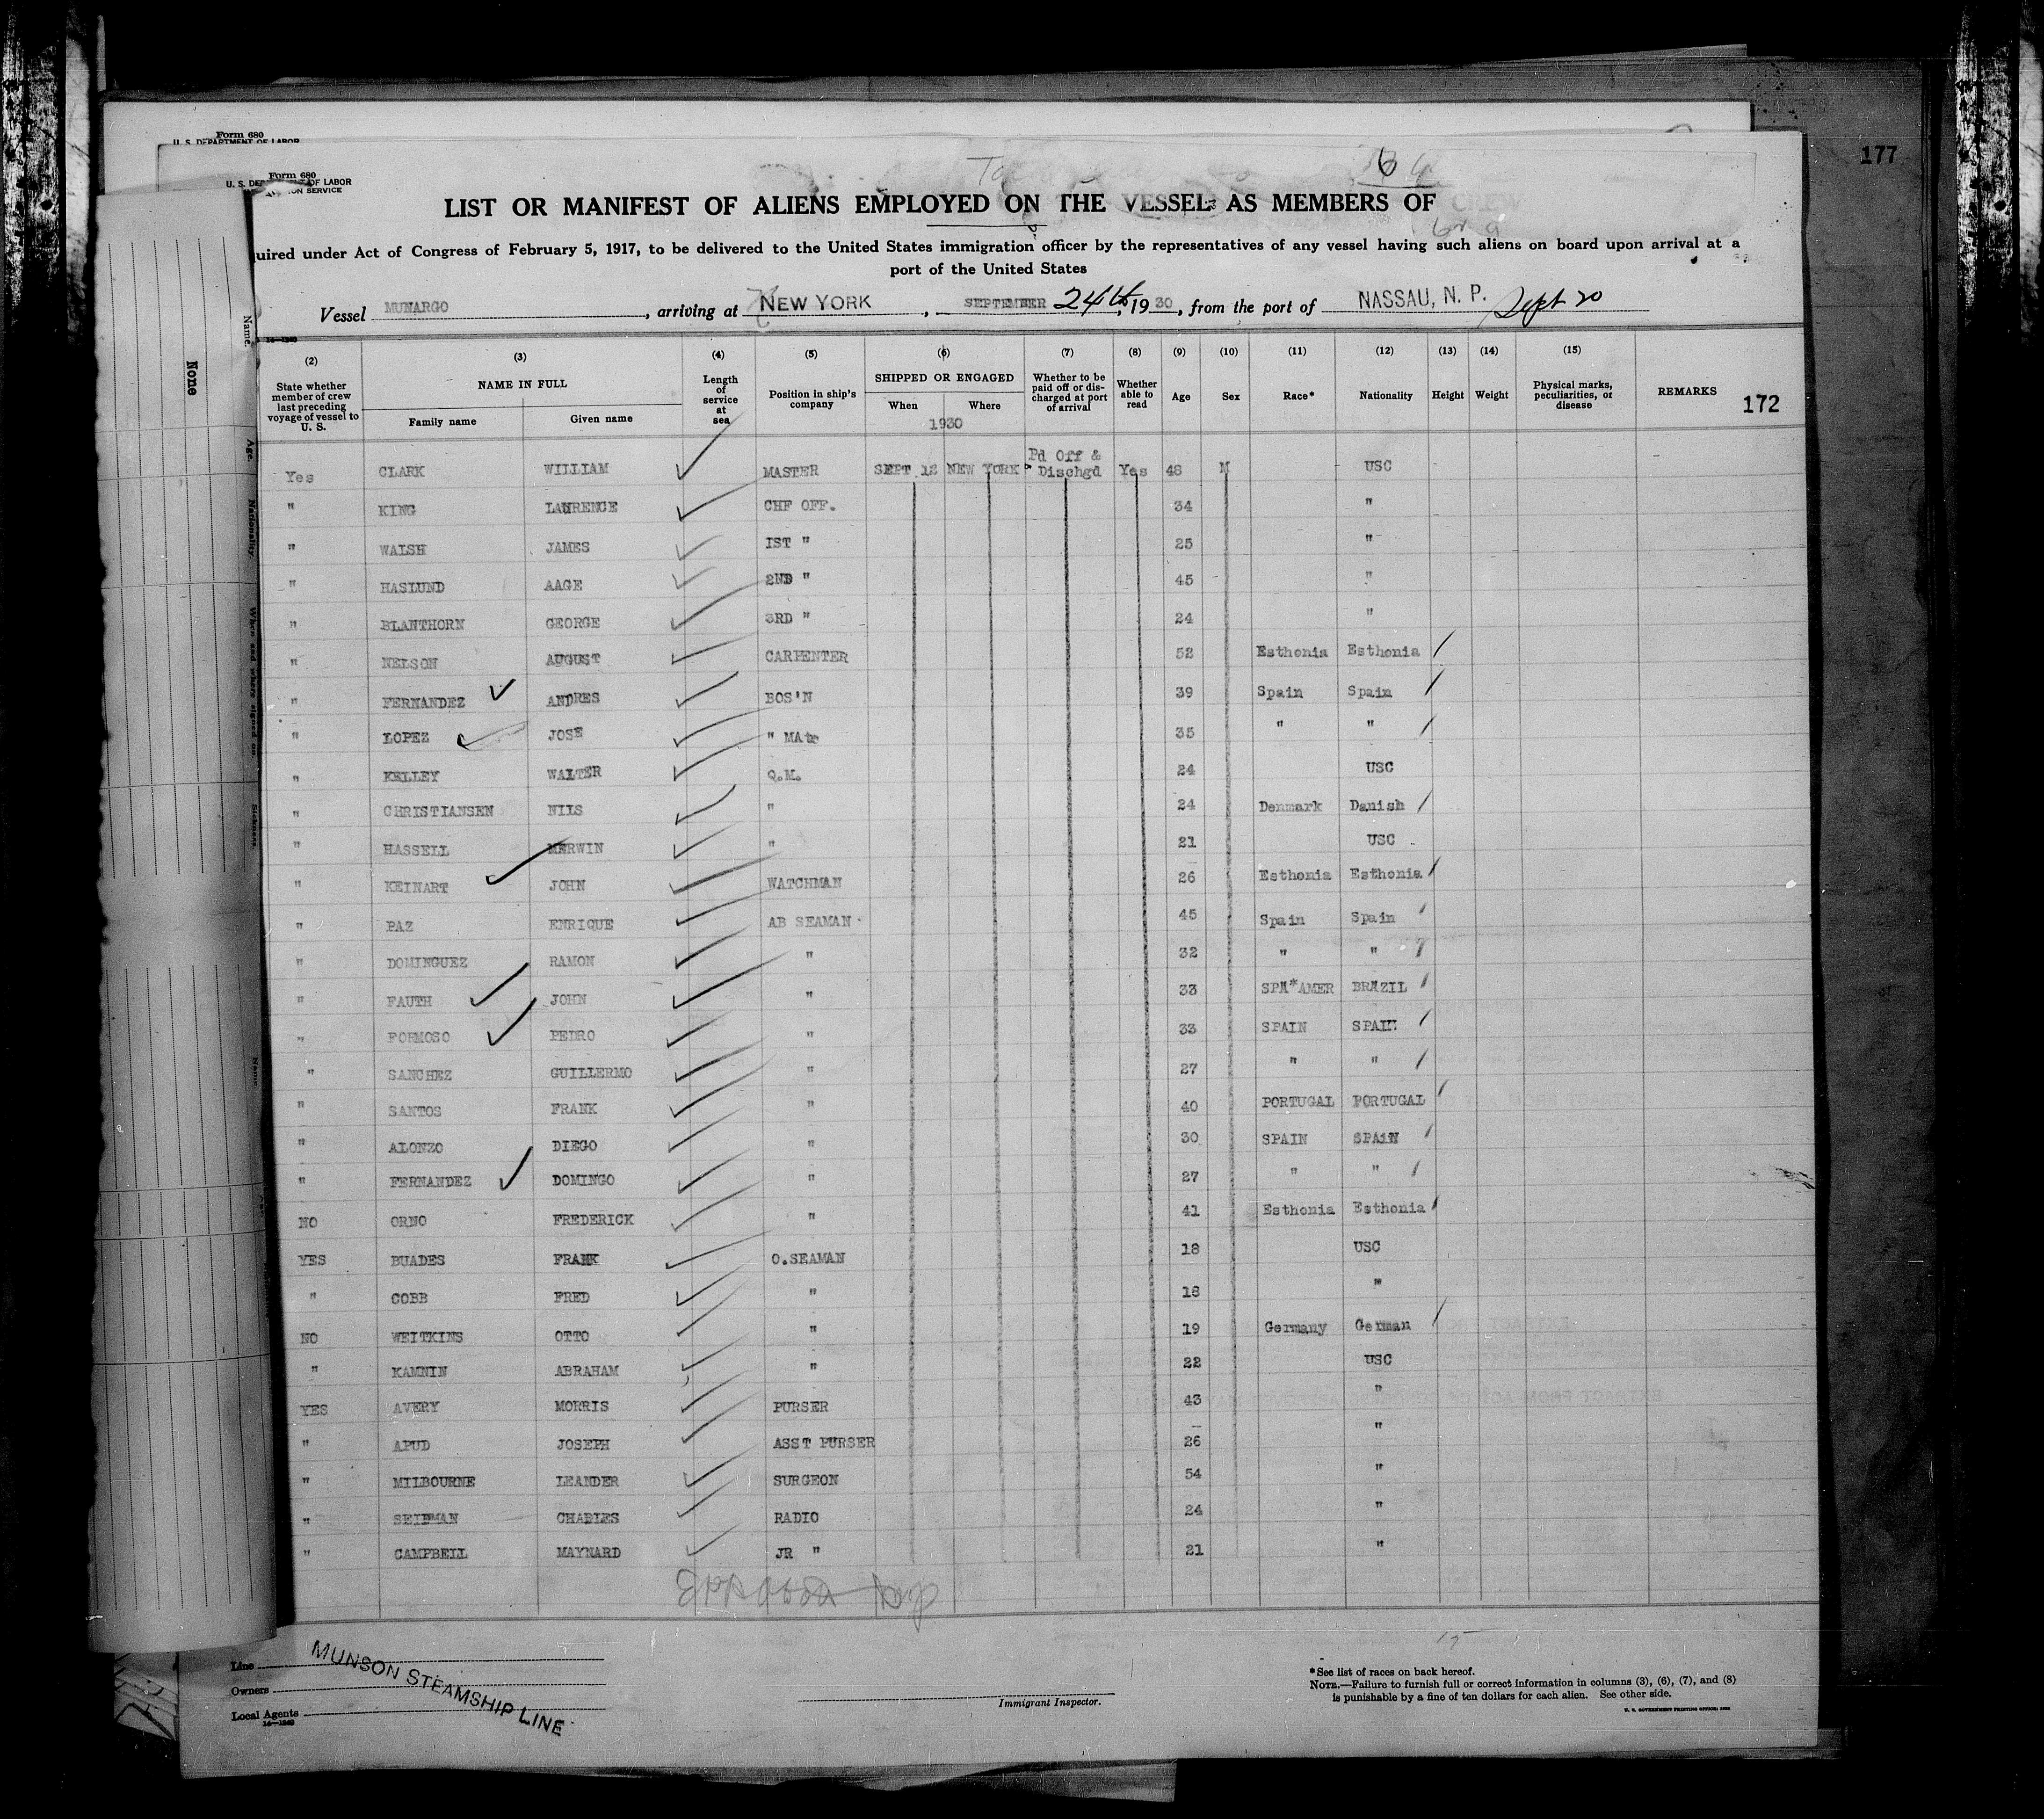 177
Form 680
U. S. DEPARTMENT OF LABOR
Form 680
U. S. DEPARTMENT OF LABOR
6
LIST OR MANIFEST OF ALIENS EMPLOYED ON THE VESSEL AS MEMBERS OF CREW
uired under Act of Congress of February 5, 1917, to be delivered to the United States immigration officer by the representatives of any vessel having such aliens on board upon arrival at a
port of the United States
Vessel MUNARGO, arriving at NEW YORK, SEPTEMBER 24th, 1930, from the port of NASSAU, N. P. Sept 20
None
Name.
Age.
Nationality.
When and where signed on
Sickness.
14—1240
(2) (3) (4) (5) (6) (7) (8) (9) (10) (11) (12) (13) (14) (15)
State whether member of crew last preceding voyage of vessel to U. S. NAME IN FULL Family name Given name Length of service at sea Position in ship's company SHIPPED OR ENGAGED When Where Whether to be paid off or discharged at port of arrival Whether able to read Age Sex Race* Nationality Height Weight Physical marks, peculiarities, or disease REMARKS 172
1930
Yes CLARK WILLIAM MASTER SEPT 12 NEW YORK Pd Off & Dischgd Yes 48 M USC
" KING LAURENCE CHF OFF. 34 "
" WALSH JAMES IST " 25 "
" HASLUND AAGE 2ND " 45 "
" BLANTHORN GEORGE 3RD " 24 "
" NELSON AUGUST CARPENTER 52 Esthonia Esthonia
" FERNANDEZ ANDRES BOS'N 39 Spain Spain
" LOPEZ JOSE " MAte 35 " "
" KELLEY WALTER Q.M. 24 USC
" CHRISTIANSEN NILS " 24 Denmark Danish
" HASSELL MERWIN " 21 USC
" KEINART JOHN WATCHMAN 26 Esthonia Esthonia
" PAZ ENRIQUE AB SEAMAN 45 Spain Spain
" DOMINGUEZ RAMON " 32 " "
" FAUTH JOHN " 33 SPA*AMER BRAZIL
" FORMOSO PEDRO " 33 SPAIN SPAIN
" SANCHEZ GUILLERMO " 27 " "
" SANTOS FRANK " 40 PORTUGAL PORTUGAL
" ALONZO DIEGO " 30 SPAIN SPAiN
" FERNANDEZ DOMINGO " 27 " "
NO ORNO FREDERICK " 41 Esthonia Esthonia
YES BUADES FRANK O.SEAMAN 18 USC
" COBB FRED " 18 "
NO WEITKINS OTTO " 19 Germany German
" KAMNIN ABRAHAM " 22 USC
YES AVERY MORRIS PURSER 43 "
" APUD JOSEPH ASST PURSER 26 "
" MILBOURNE LEANDER SURGEON 54 "
" SEIDMAN CHARLES RADIO 24 "
" CAMPBELL MAYNARD JR " 21 "
Line
Owners
Local Agents
MUNSON STEAMSHIP LINE
14—1240
Immigrant Inspector.
*See list of races on back hereof.
NOTE.—Failure to furnish full or correct information in columns (3), (6), (7), and (8)
is punishable by a fine of ten dollars for each alien. See other side.
U. S. GOVERNMENT PRINTING OFFICE: